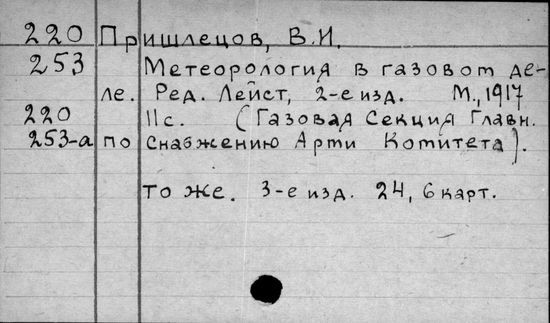 220 Пришлецов, В.И.
253 Метеорология в газовом де-
ле. Ред. Лейст, 2-е изд. М., 1917
220 11с. (Газовая Секция Главн.
253-а по Снабжению Арти Комитета).
То же. 3-е изд. 24, 6 карт.